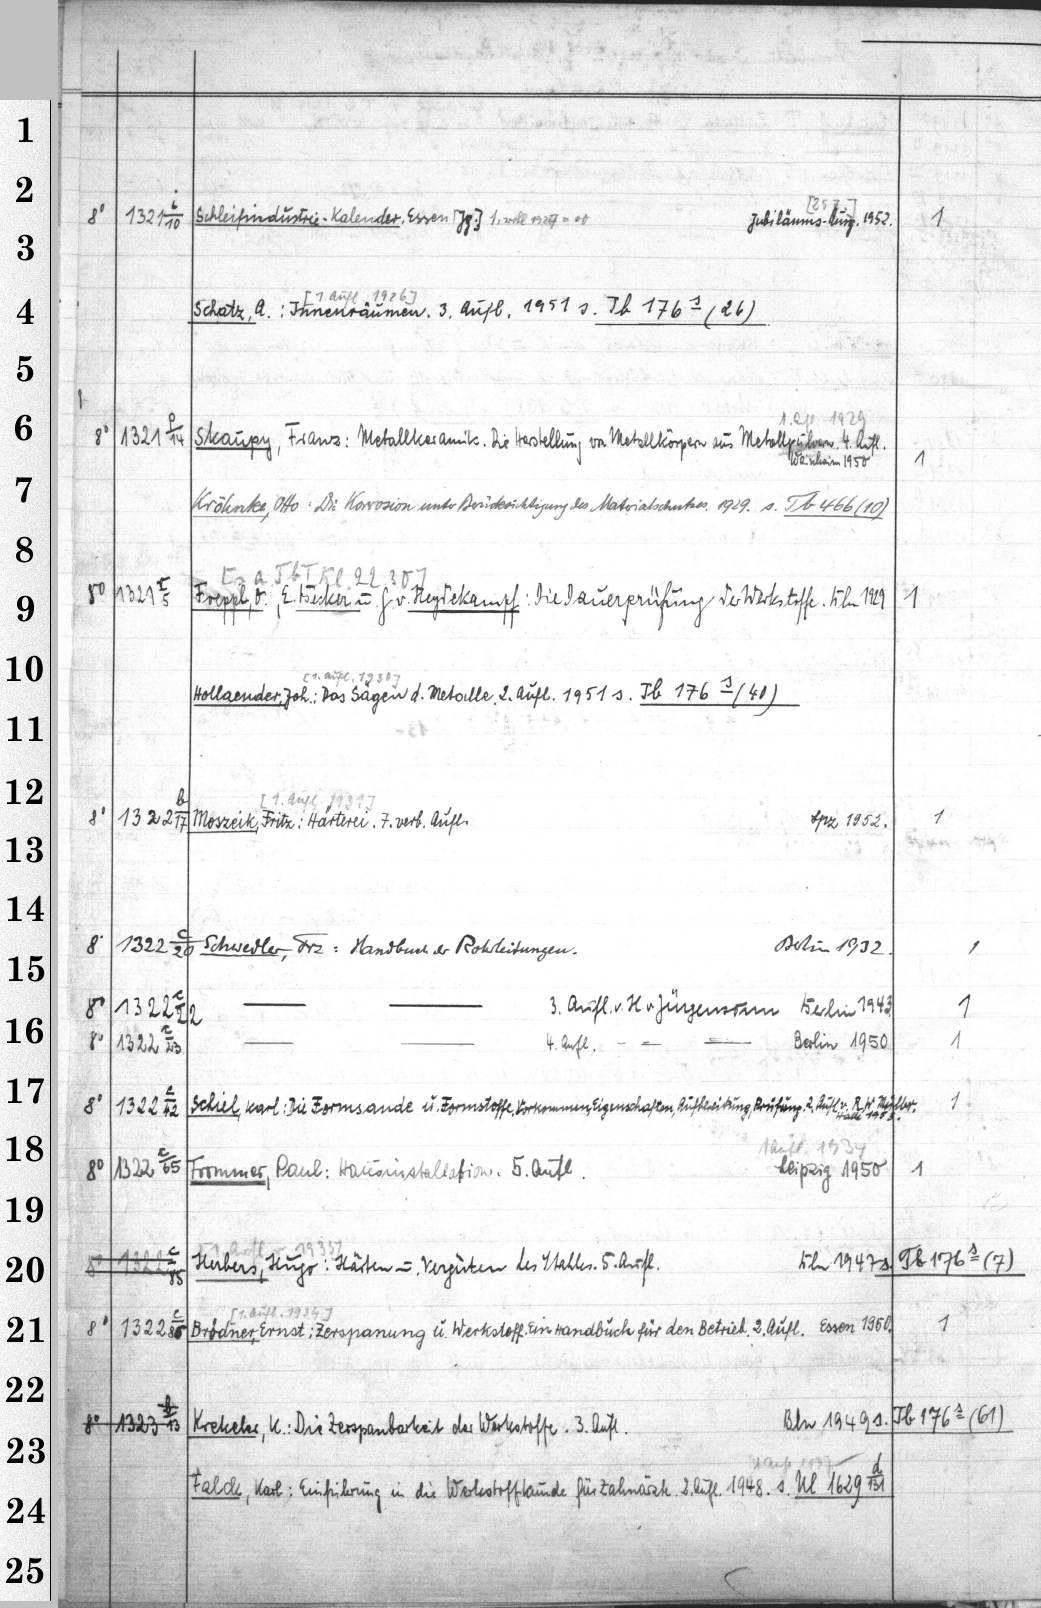 1
2
[25.J.]
8° 1321 i/10 Schleifindustrie-Kalender. Essen [Jg.] Jubiläums-Ausg. 1952. 1
3
[1. Aufl. 1926]
4 Schatz, A.: Innenräumen. 3. Aufl. 1951 s. Tb 176 s (26)
5
1. Afl 1929
6 8° 1321 p/14 Skaupy, Franz: Metallkeramik. Die Herstellung von Metallkörpern aus Metallpulvern. 4. Aufl.
Weinheim 1950 1
7 Kröhnke, Otto: Die Korrosion unter Berücksichtigung des Materialschutzes. 1929. s. Tb 466 (10)
8
9 8° 1321 r/5 Foeppl, O., E. Becker u. G. v. Heydekampf: Die Dauerprüfung der Werkstoffe. Bln 1929 1
10
[1. Aufl. 1930]
Hollaender, Joh.: Das Sägen d. Metalle. 2. Aufl. 1951 s. Tb 176 s (40)
11
12
[1. Aufl. 1931]
8° 1322 b/17 Moszeik, Fritz: Härterei. 7. verb. Aufl. Lpz 1952. 1
13
14
8° 1322 c/20 Schwedler, Frz: Handbuch der Rohrleitungen. Berlin 1932. 1
15
8° 1322 c/22 — — 3. Aufl. v. H. v. Jürgensonn Berlin 1943 1
16 8° 1322 c/23 — — 4. Aufl. - — — Berlin 1950 1
17 8° 1322 c/42 Schiel, Karl: Die Formsande u. Formstoffe, Vorkommen, Eigenschaften, Aufbereitung, Prüfung. 2. Aufl. v. R. W. Müller. 1
Halle
18
1. Aufl. 1934
8° 1322 c/65 Frommer, Paul: Hausinstallation. 5. Aufl. Leipzig 1950 1
19
[1. Aufl. 1933]
20 8° 1322 c/85 Herbers, Hugo: Härten u. Vergüten des Stahles. 5. Aufl. Bln 1947 s. Tb 176 s (7)
[1. Aufl. 1934]
21 8° 1322 c/86 Brödner, Ernst: Zerspanung u. Werkstoff. Ein Handbuch für den Betrieb. 2. Aufl. Essen 1950. 1
22
8° 1323 13 Krekeler, K.: Die Zerspanbarkeit der Werkstoffe. 3. Aufl. Bln 1949 s. Tb 176 s (61)
23
1. Aufl. 1937
Falck, Karl: Einführung in die Werkstoffkunde für Zahnärzte. 2. Aufl. 1948. s. Kl 1629 d/151
24
25